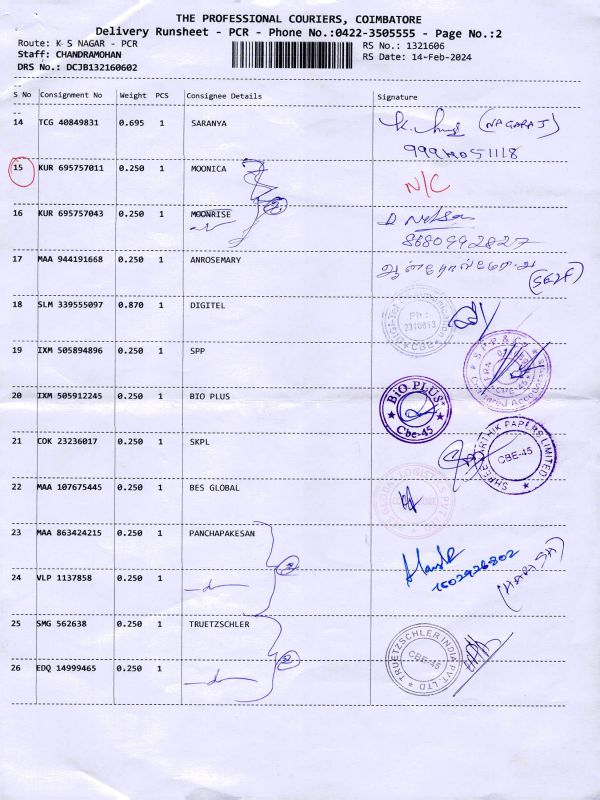 THE PROFESSIONAL COURIERS, COIMBATORE
Delivery Runsheet - PCR - Phone No.:0422-3505555 - Page No.:2
Route: K S NAGAR - PCR
RS No.: 1321606
Staff: CHANDRAMOHAN
RS Date: 14-Feb-2024
DRS No.: DCJB132160602
S No Consignment No Weight PCS Consignee Details Signature
14 TCG 40849831 0.695 1 SARANYA (NAGARAJ)
15 KUR 695757011 0.250 1 MOONICA N/C
16 KUR 695757043 0.250 1 MOONRISE D Nelson
8680992827
17 MAA 944191668 0.250 1 ANROSEMARY (SELF)
18 SLM 339555097 0.870 1 DIGITEL
19 IXM 505894896 0.250 1 SPP
20 IXM 505912245 0.250 1 BIO PLUS BIO PLUS Cbe-45
21 COK 23236017 0.250 1 SKPL SHREE KARTHIK PAPERS LIMITED CBE-45
22 MAA 107675445 0.250 1 BES GLOBAL
23 MAA 863424215 0.250 1 PANCHAPAKESAN 2
24 VLP 1137858 0.250 1
25 SMG 562638 0.250 1 TRUETZSCHLER 2 TRUETZSCHLER INDIA PVT. LTD CBE-45
26 EDQ 14999465 0.250 1